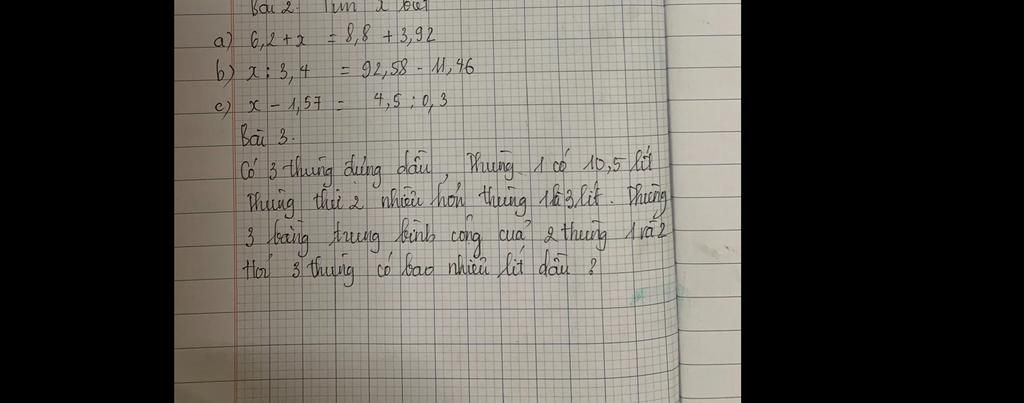 Bài 2. Tìm x biết
a) 6,2 + x = 8,8 + 3,92
b) x : 3,4 = 92,58 - 11,46
c) x - 1,57 = 4,5 : 0,3
Bài 3.
Có 3 thùng đựng dầu, Thùng 1 có 10,5 lít
Thùng thứ 2 nhiều hơn thùng 1 là 3 lít. Thùng
3 bằng trung bình cộng của 2 thùng 1 và 2
Hỏi 3 thùng có bao nhiêu lít dầu ?